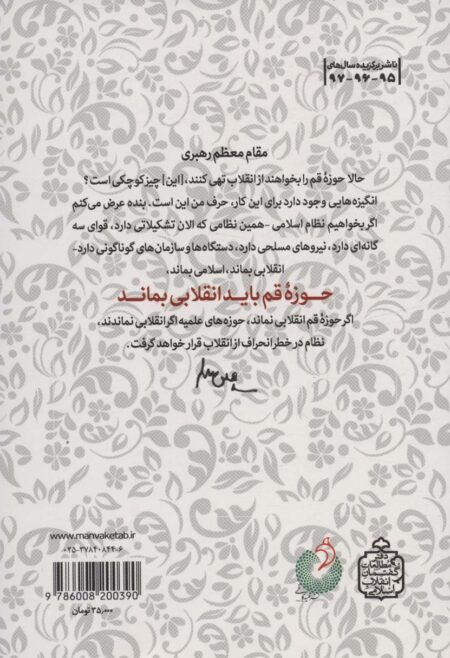 ناشر برگزیده سال‌های
۹۵-۹۶-۹۷
مقام معظم رهبری
حالا حوزهٔ قم را بخواهند از انقلاب تهی کنند، [این] چیز کوچکی است؟
انگیزه‌هایی وجود دارد برای این کار، حرف من این است. بنده عرض می‌کنم
اگر بخواهیم نظام اسلامی -همین نظامی که الان تشکیلاتی دارد، قوای سه
گانه‌ای دارد، نیروهای مسلحی دارد، دستگاه‌ها و سازمان‌های گوناگونی دارد-
انقلابی بماند، اسلامی بماند،
حوزهٔ قم باید انقلابی بماند
اگر حوزهٔ قم انقلابی نماند، حوزه‌های علمیه اگر انقلابی نماندند،
نظام در خطر انحراف از انقلاب قرار خواهد گرفت.
www.manvaketab.ir
۰۲۵-۳۷۸۴۰۸۴۴-۶
9 786008 200390
۳۵،۰۰۰ تومان
دفتر
مطالعات
گفتمان
انقلاب
اسلامی